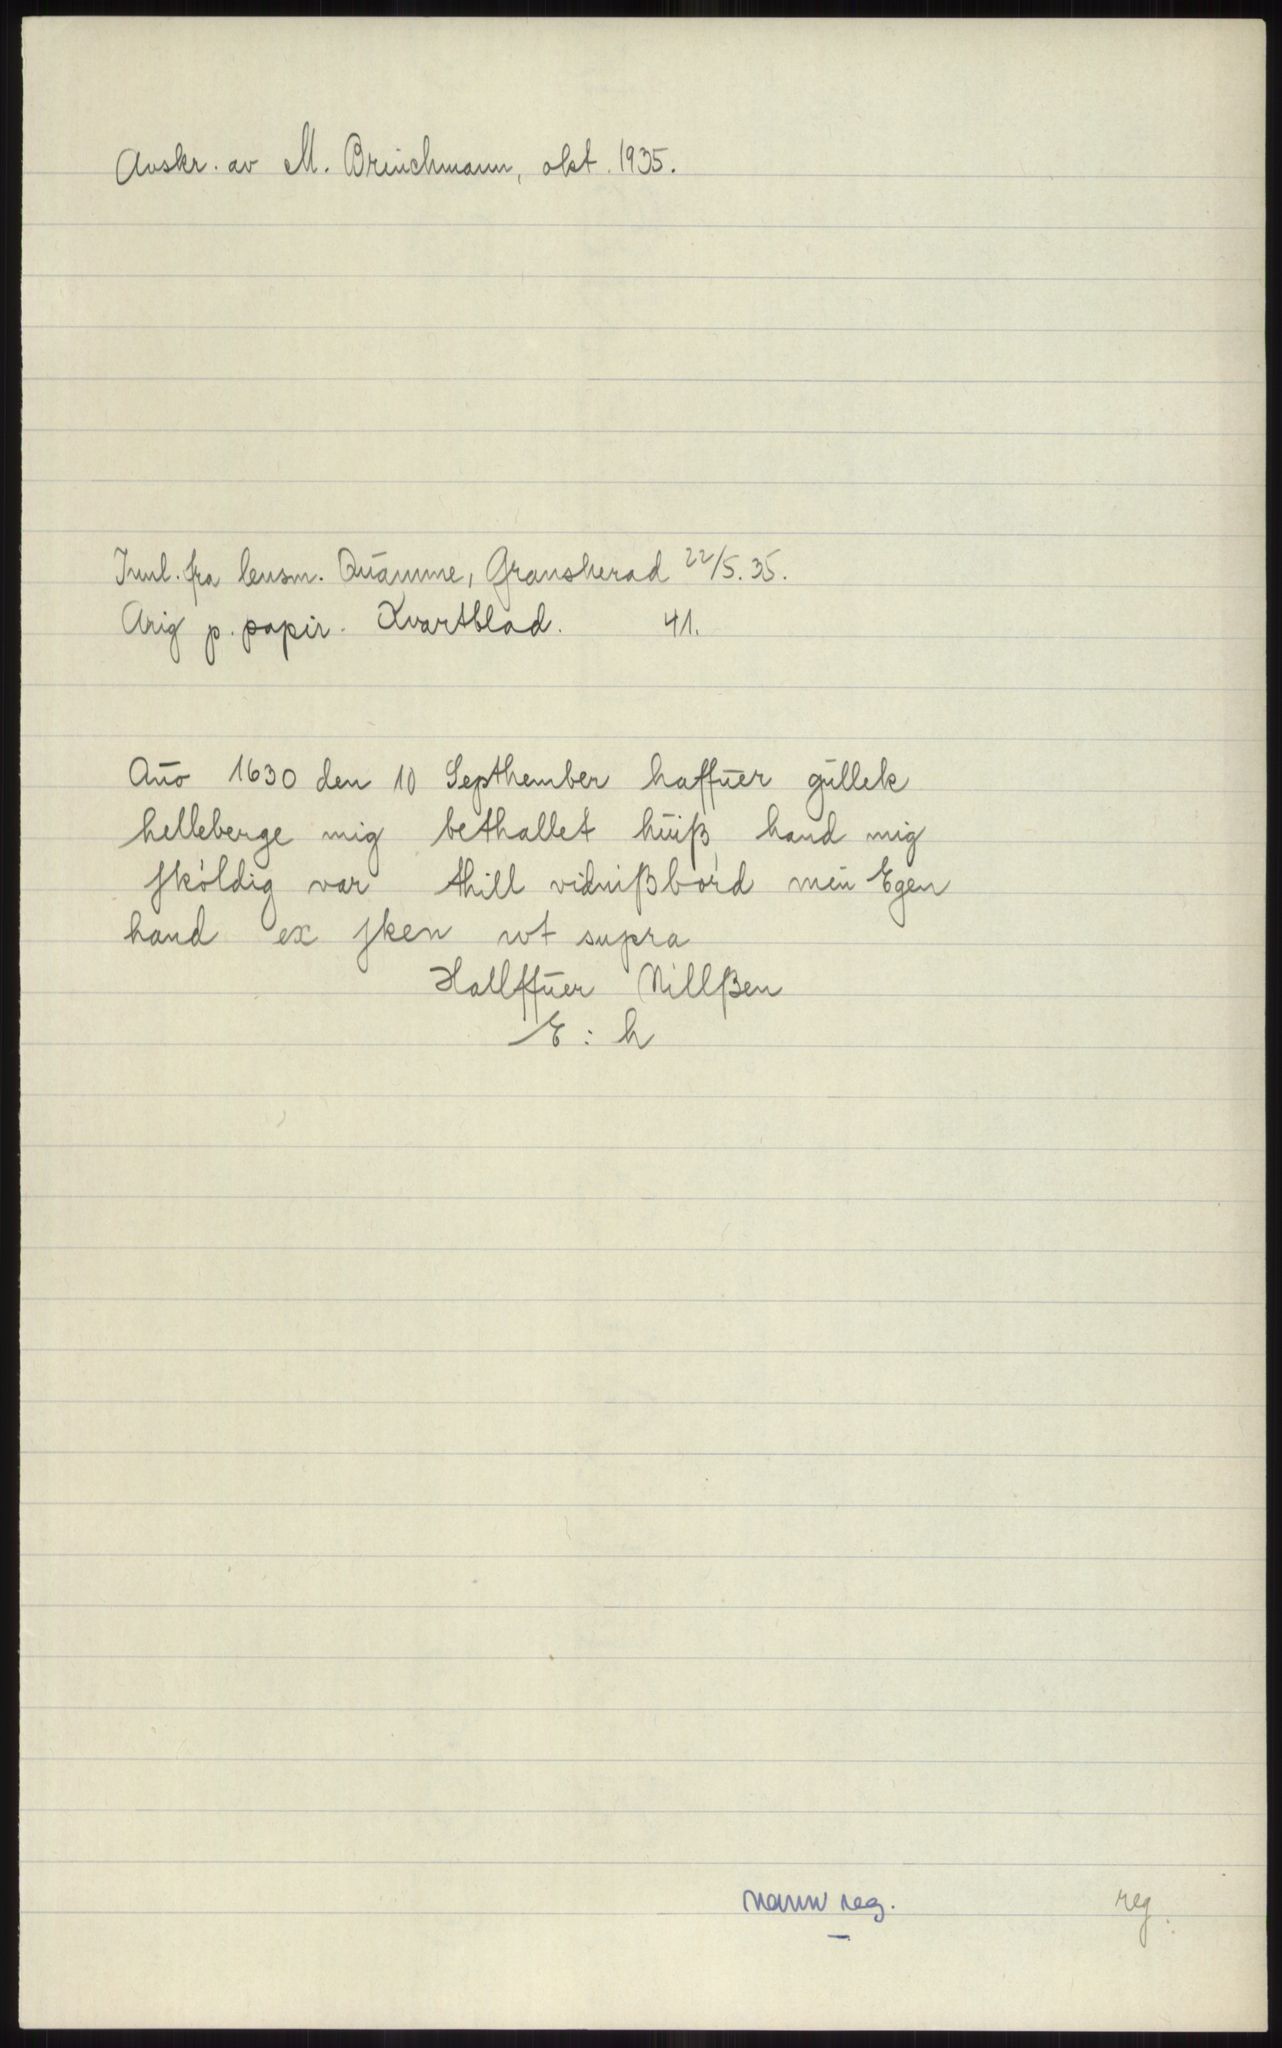 Avskr. av M. Brinchmann, okt. 1935.
Innl. fra lensm. Quamme, Gransherad 22/5. 35.
Orig p. papir. Kvartblad. 41.
Año 1630 den 10 Septhember haffuer gullek
helleberge mig bethallet huiß hand mig
skóldig var thill vidnißbórd min Egen
hand ex sken wt supra
Hallffuer Nillßen
E : h
navnreg.
reg.